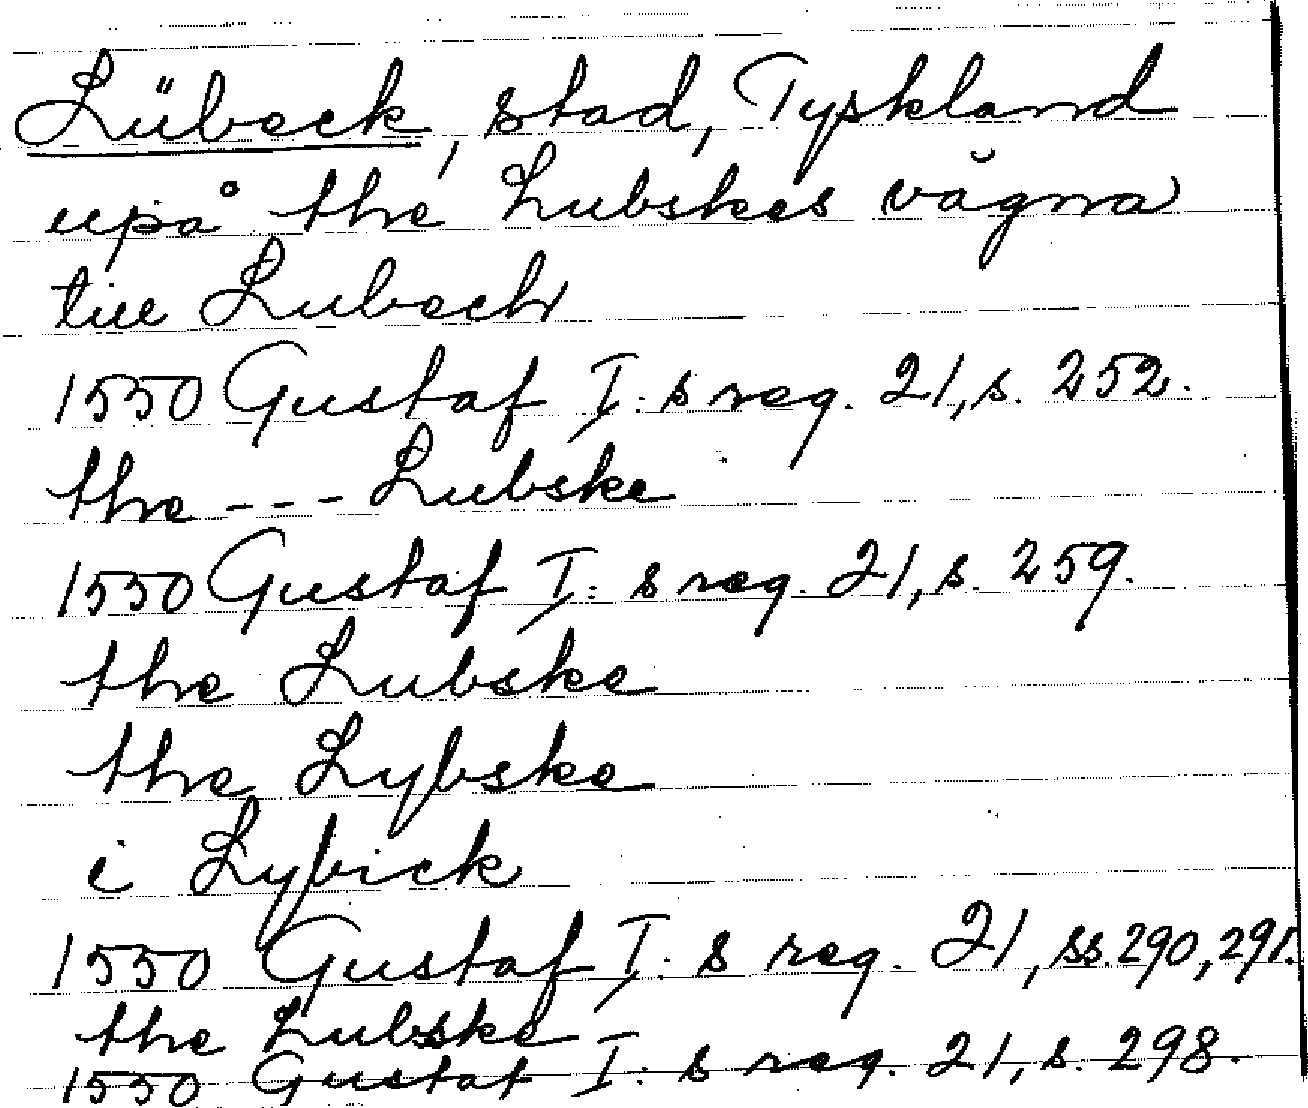 Lübeck, stad, Tyskland
upå the Lubskes vägna
till Lubeck
1550 Gustaf I:s reg. 21, s. 252.
the --- Lubske
1550 Gustaf I:s reg. 21, s. 259.
the Lubske
the Lybske
i Lybick
1550 Gustaf I:s reg. 21, ss. 290, 291.
the Lubske
1550 Gustaf I:s reg. 21, s. 298.